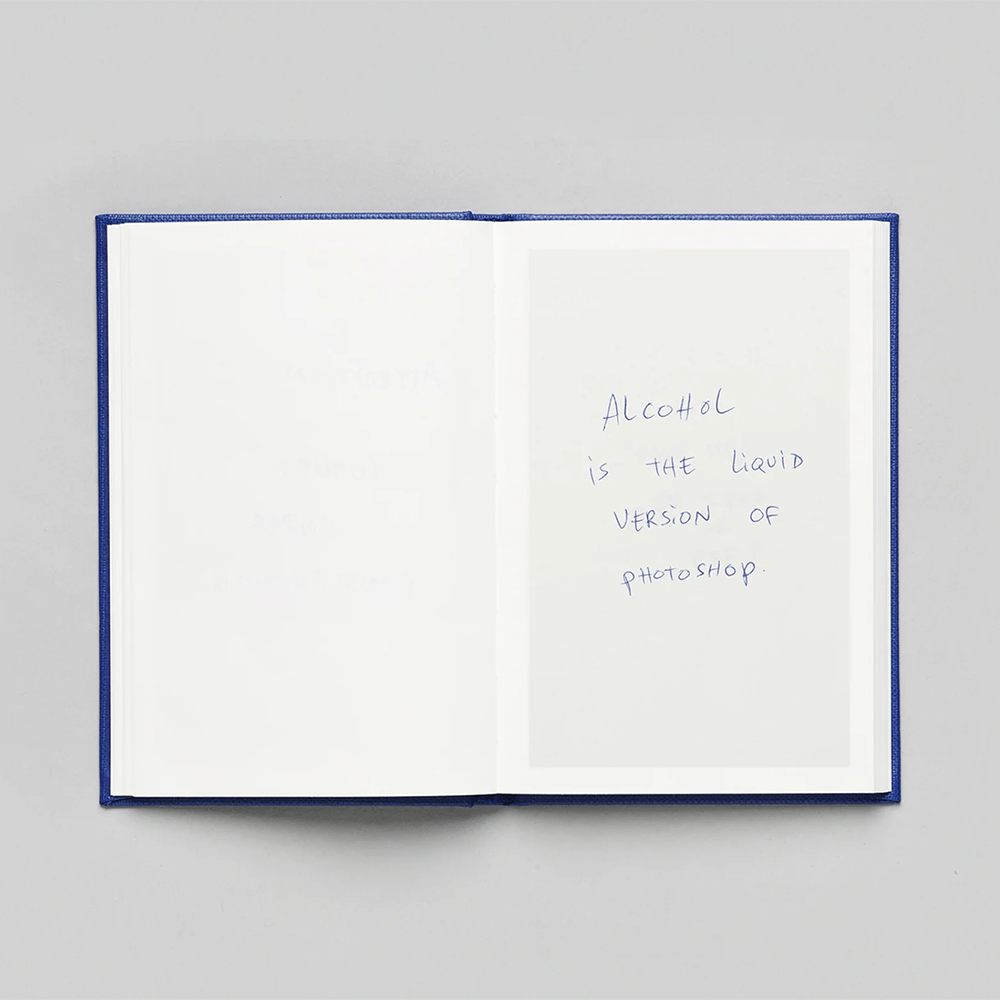 ALCOHOL
iS THE LiQUiD
VERSiON OF
PHOTOSHOP.